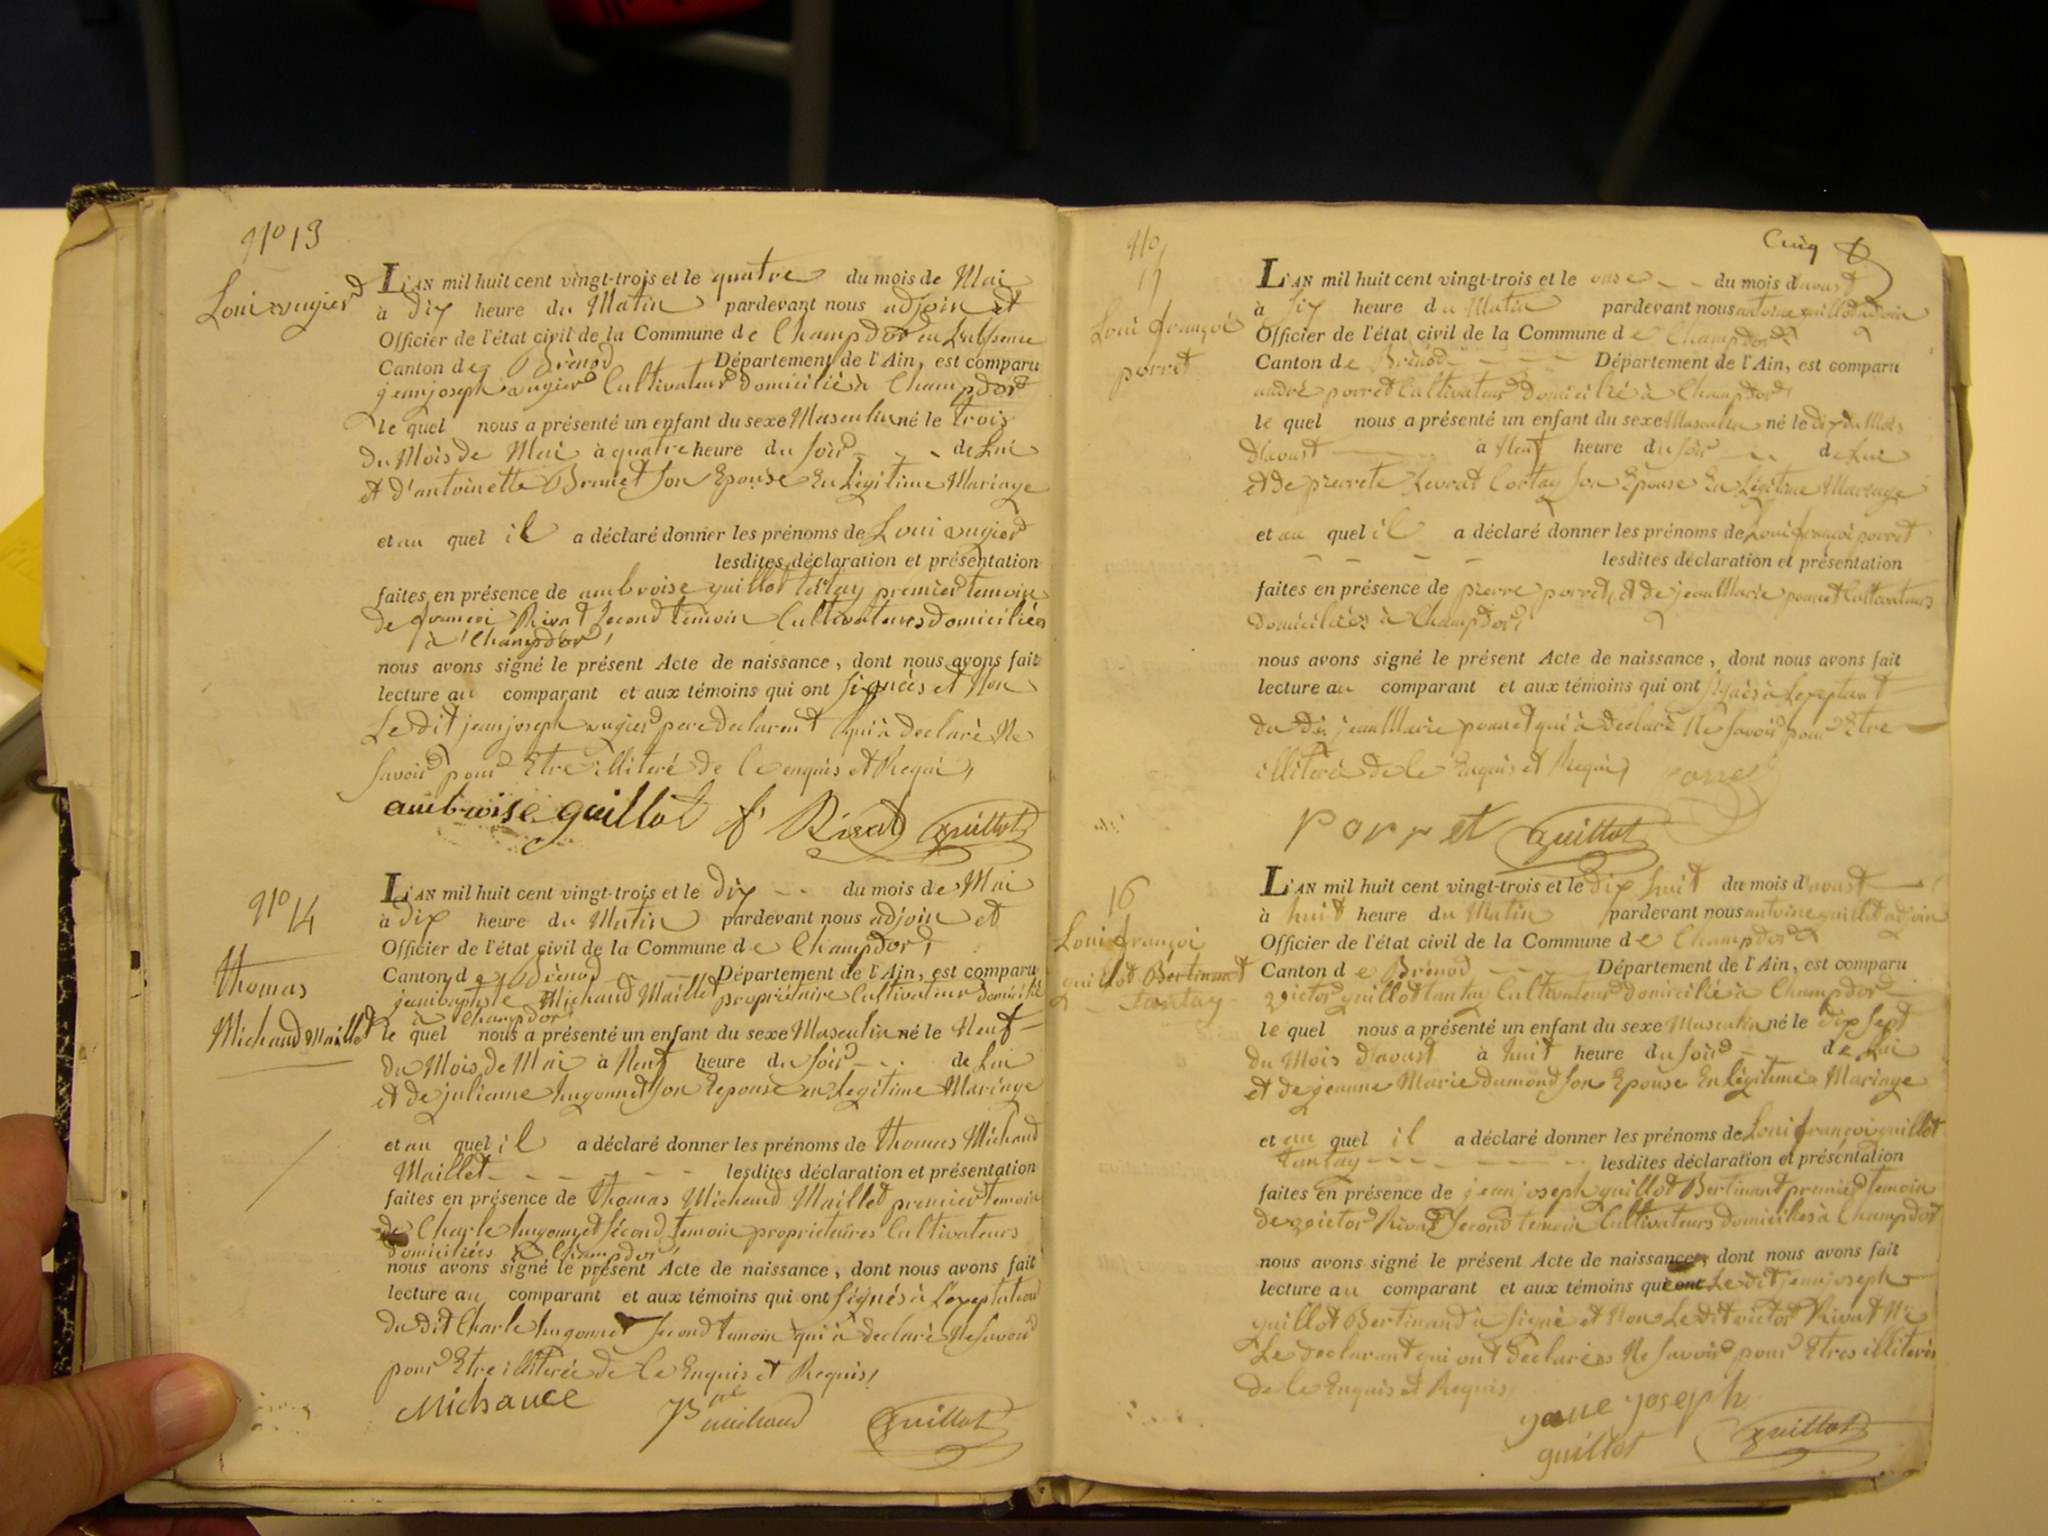 N° 13
Loui augier
L'AN mil huit cent vingt-trois et le quatre du mois de Mai
à dix heure du Matin pardevant nous adjoin et
Officier de l'état civil de la Commune de Champdor
Canton de Brénod Département de l'Ain, est comparu
jean joseph augier Cultivateur domicilié à Champdor
le quel nous a présenté un enfant du sexe Masculin né le trois
du Mois de Mai à quatre heure du soir de Lui
et d'antoinette Brunet Son Epouse En Légitime Mariage
et au quel il a déclaré donner les prénoms de Loui augier
lesdites déclaration et présentation
faites en présence de ambroise guillot tantay premier temoin
de françoi Rivat Second temoin Cultivateurs domiciliés
à Champdor
nous avons signé le présent Acte de naissance, dont nous avons fait
lecture au comparant et aux témoins qui ont signées et Non
Le dit jean joseph augier pere declarent qui à declaré Ne
Savoir pour Etre illiteré de le enquis et Requi
ambroise guillot f Rivat guillot
N° 14
thomas
Michaud Maillet
L'AN mil huit cent vingt-trois et le dix du mois de Mai
à dix heure du Matin pardevant nous adjoin et
Officier de l'état civil de la Commune de Champdor
Canton de Brénod Département de l'Ain, est comparu
jean baptiste Michaud Maillet propriétaire Cultivateur domicilié
à Champdor
le quel nous a présenté un enfant du sexe Masculin né le Neuf
du Mois de Mai à Neuf heure du soir de Lui
et de julienne hugonnet Son Epouse en Legitime Mariage
et au quel il a déclaré donner les prénoms de thomas Michaud
Maillet lesdites déclaration et présentation
faites en présence de thomas Michaud Maillet premier temoin
de Charle hugonnet Second temoin proprietaires Cultivateurs
domiciliées à Champdor
nous avons signé le présent Acte de naissance, dont nous avons fait
lecture au comparant et aux témoins qui ont signés à L'exeptation
du dit Charle hugonnet Second temoin qui à declaré Ne Savoir
pour Etre illiterée de le Enquis et Requis
Michaue JB michaud guillot
Cinq
N°
Loui françoi
porret
L'AN mil huit cent vingt-trois et le onse du mois d'avoust
à Six heure du Matin pardevant nous antoine guillot adjoin
Officier de l'état civil de la Commune de Champdor
Canton de Brénod Département de l'Ain, est comparu
andré porret Cultivateur domicilié à Champdor
le quel nous a présenté un enfant du sexe Masculin né le dix du Mois
d'avoust à Neuf heure du soir de Lui
et de pierrete Levrat Cortay Son Epouse En Légitime Mariage
et au quel il a déclaré donner les prénoms de Loui françoi porret
lesdites déclaration et présentation
faites en présence de pierre porret, et de jean Marie ponnet Cultivateurs
domiciliées à Champdor
nous avons signé le présent Acte de naissance, dont nous avons fait
lecture au comparant et aux témoins qui ont signés à Lexeptant
du dit jean Marie ponnet qui à declaré Ne Savoir pour Etre
illiteré de le Enquis et Requi porret
Porret guillot
16
Loui françoi
guillot Bertinand
tantay
L'AN mil huit cent vingt-trois et le dix huit du mois d'avoust
à huit heure du Matin pardevant nous antoine guillot adjoin
Officier de l'état civil de la Commune de Champdor
Canton de Brénod Département de l'Ain, est comparu
victor guillot tantay Cultivateur domicilié à Champdor
le quel nous a présenté un enfant du sexe Masculin né le dix Sept
du Mois d'avoust à huit heure du soir de Lui
et de jeanne Marie dumond Son Epouse En Légitime Mariage
et au quel il a déclaré donner les prénoms de Loui françoi guillot
tantay lesdites déclaration et présentation
faites en présence de jean joseph guillot Bertinand premier temoin
de victor Rivat Second temoin Cultivateurs domiciliés à Champdor
nous avons signé le présent Acte de naissance, dont nous avons fait
lecture au comparant et aux témoins qui ont Le dit jean joseph
guillot Bertinand à signé et Non Le dit victor Rivat Ni
Le declarant qui ont declarées Ne Savoir pour Etres illiterés
de le Enquis et Requis
jane joseph
guillot guillot